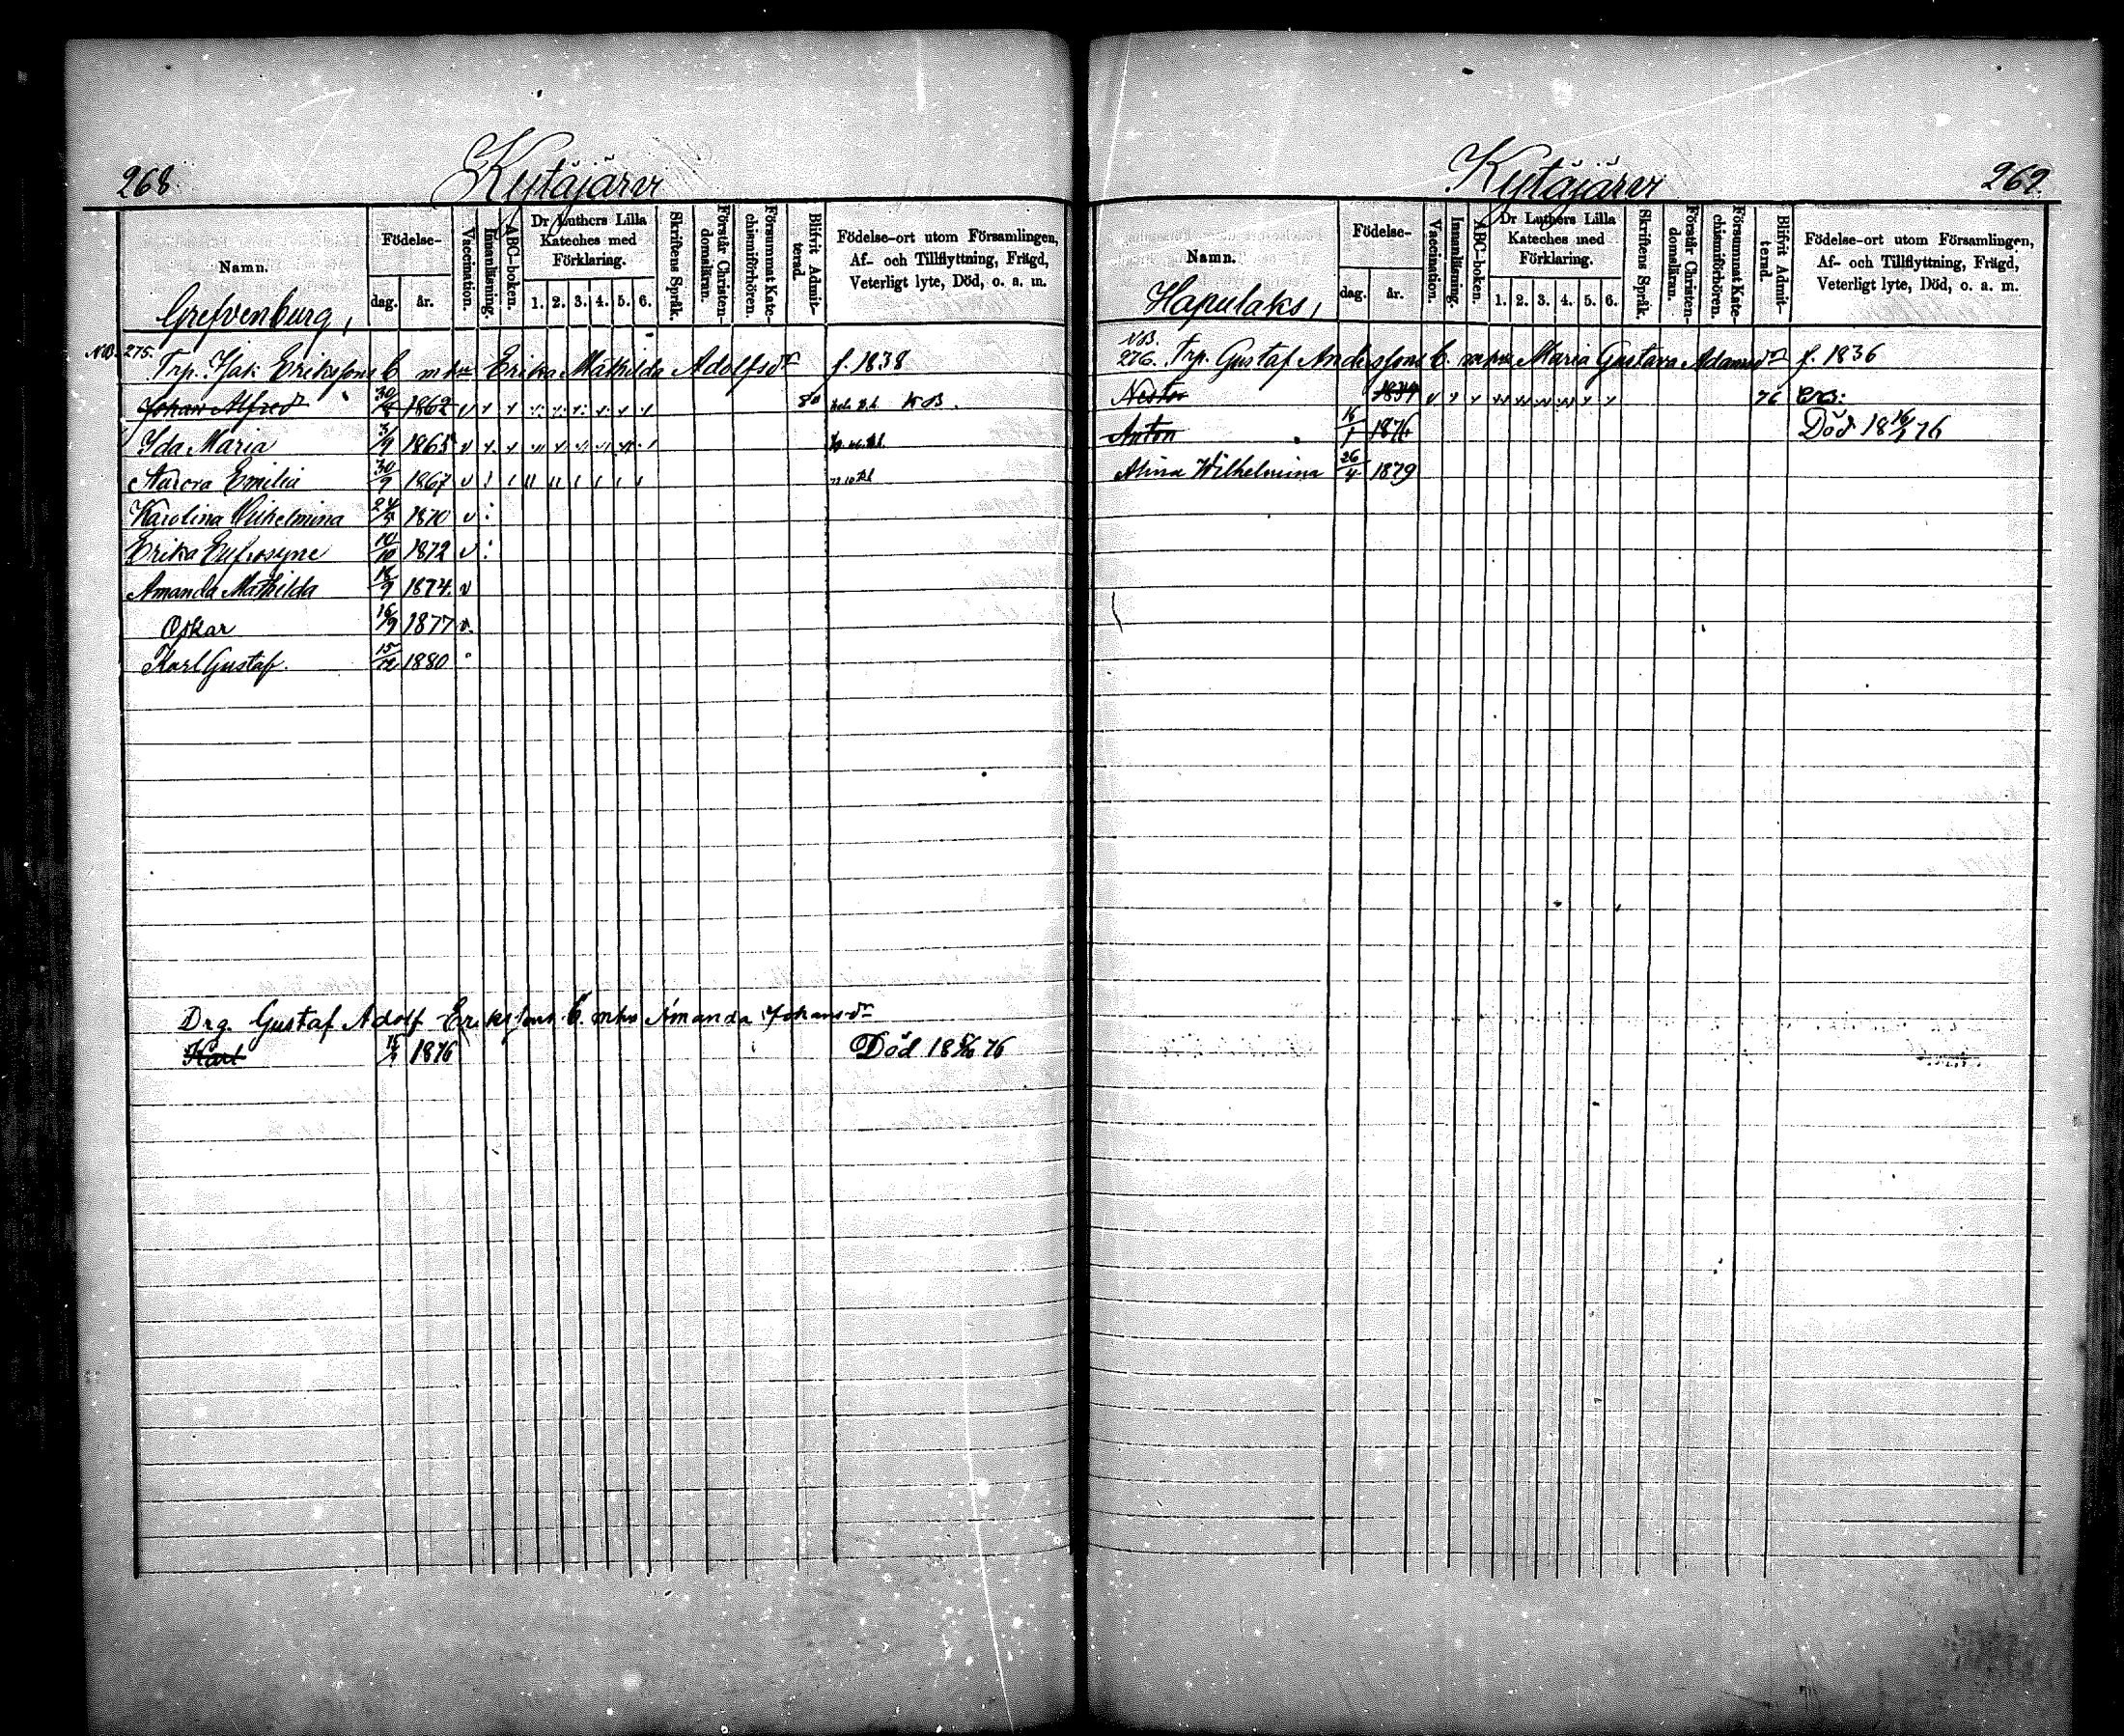 268. Kytäjärvi
Namn.
Födelse-
dag. år.
Vaccination.
Innanläsning.
ABC-boken.
Dr Luthers Lilla
Kateches med
Förklaring.
1. 2. 3. 4. 5. 6.
Skriftens Språk.
Förstår Christen-
domsläran.
Försummat Kate-
chismiförhören.
Blifvit Admit-
terad.
Födelse-ort utom Församlingen,
Af- och Tillflyttning, Frägd,
Veterligt lyte, Död, o. a. m.
Grefvenburg,
NB. 275.
Trp. Isak Erikssons C m hu Erika Mathilda Adolfsdr f. 1838
Johan Alfred 30/8 1862 v 80 NB.
Ida Maria 3/9 1865 v
Aurora Emilia 30/9 1867 v
Karolina Vilhelmina 24/5 1870 v
Erika Eufrosyne 10/10 1872 v
Amanda Mathilda 18/9 1874. v
Oskar 16/9 1877 v.
Karl Gustaf. 15/12 1880
Drg. Gustaf Adolf Erikssons C. m hu Amanda Johansdr
Karl 1876 Död 18 76
Kytäjärvi 269.
Namn.
Födelse-
dag. år.
Vaccination.
Innanläsning.
ABC-boken.
Dr Luthers Lilla
Kateches med
Förklaring.
1. 2. 3. 4. 5. 6.
Skriftens Språk.
Förstår Christen-
domsläran.
Försummat Kate-
chismiförhören.
Blifvit Admit-
terad.
Födelse-ort utom Församlingen,
Af- och Tillflyttning, Frägd,
Veterligt lyte, Död, o. a. m.
Hapulaks,
NB.
276. Trp. Gustaf Anderssons C. m hu Maria Gustava Adamsdr f. 1836
Nestor v 76
Anton 16/1 1876 Död 18 16/1 76
Alina Wilhelmina 26/4 1879